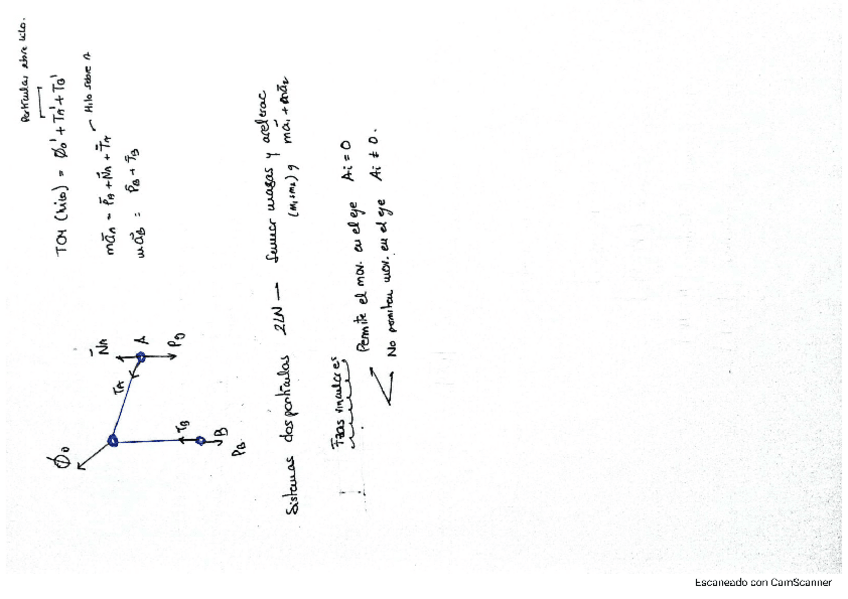 Partículas sobre hilo.
TCM (hilo) = Φ₀' + TA' + TB'
Hilo sobre A
māA = P̄A + N̄A + T̄A
māB = P̄B + T̄B
Φ₀
TA
N̄A
A
TB
B
PB
Sistemas dos partículas 2LN → Sumar masas y acelerac
(m₁+m₂) g mā₁ + mā₂
Fzas vinculares
Permite el mov. en el eje Ai = 0
No permiten mov. en el eje Ai ≠ 0.
Escaneado con CamScanner